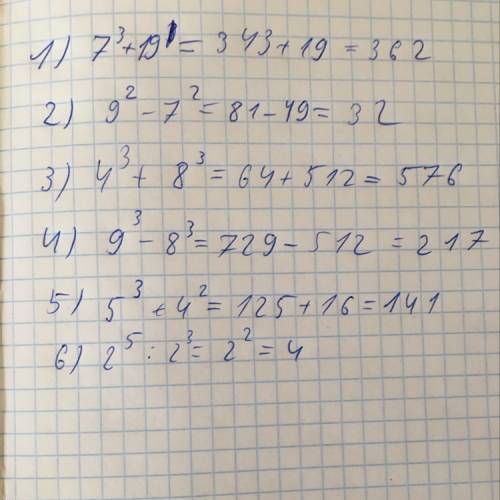 1) 7³+19¹=343+19=362
2) 9²-7²=81-49=32
3) 4³+8³=64+512=576
4) 9³-8³=729-512=217
5) 5³+4²=125+16=141
6) 2⁵:2³=2²=4